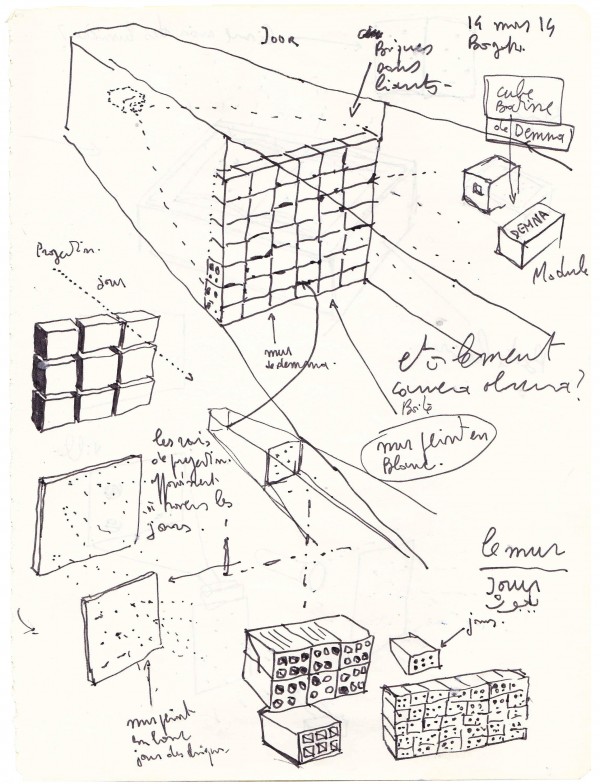 14 mars 14
JOOR
Briques
sans
liants
cube
de Demna
DEMNA
Module
Projection
jour
mur
de demna.
et
camera obscura?
Boite
mur peint en
Blanc.
les rais
de projection
à travers les
jours.
le mur
Jours
jours.
mur peint
en blanc
jour des briques.